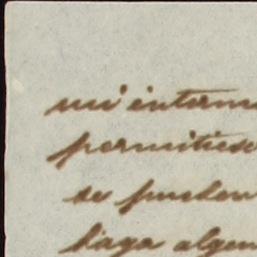 mi interme
permitiese
se pueden
haga algun